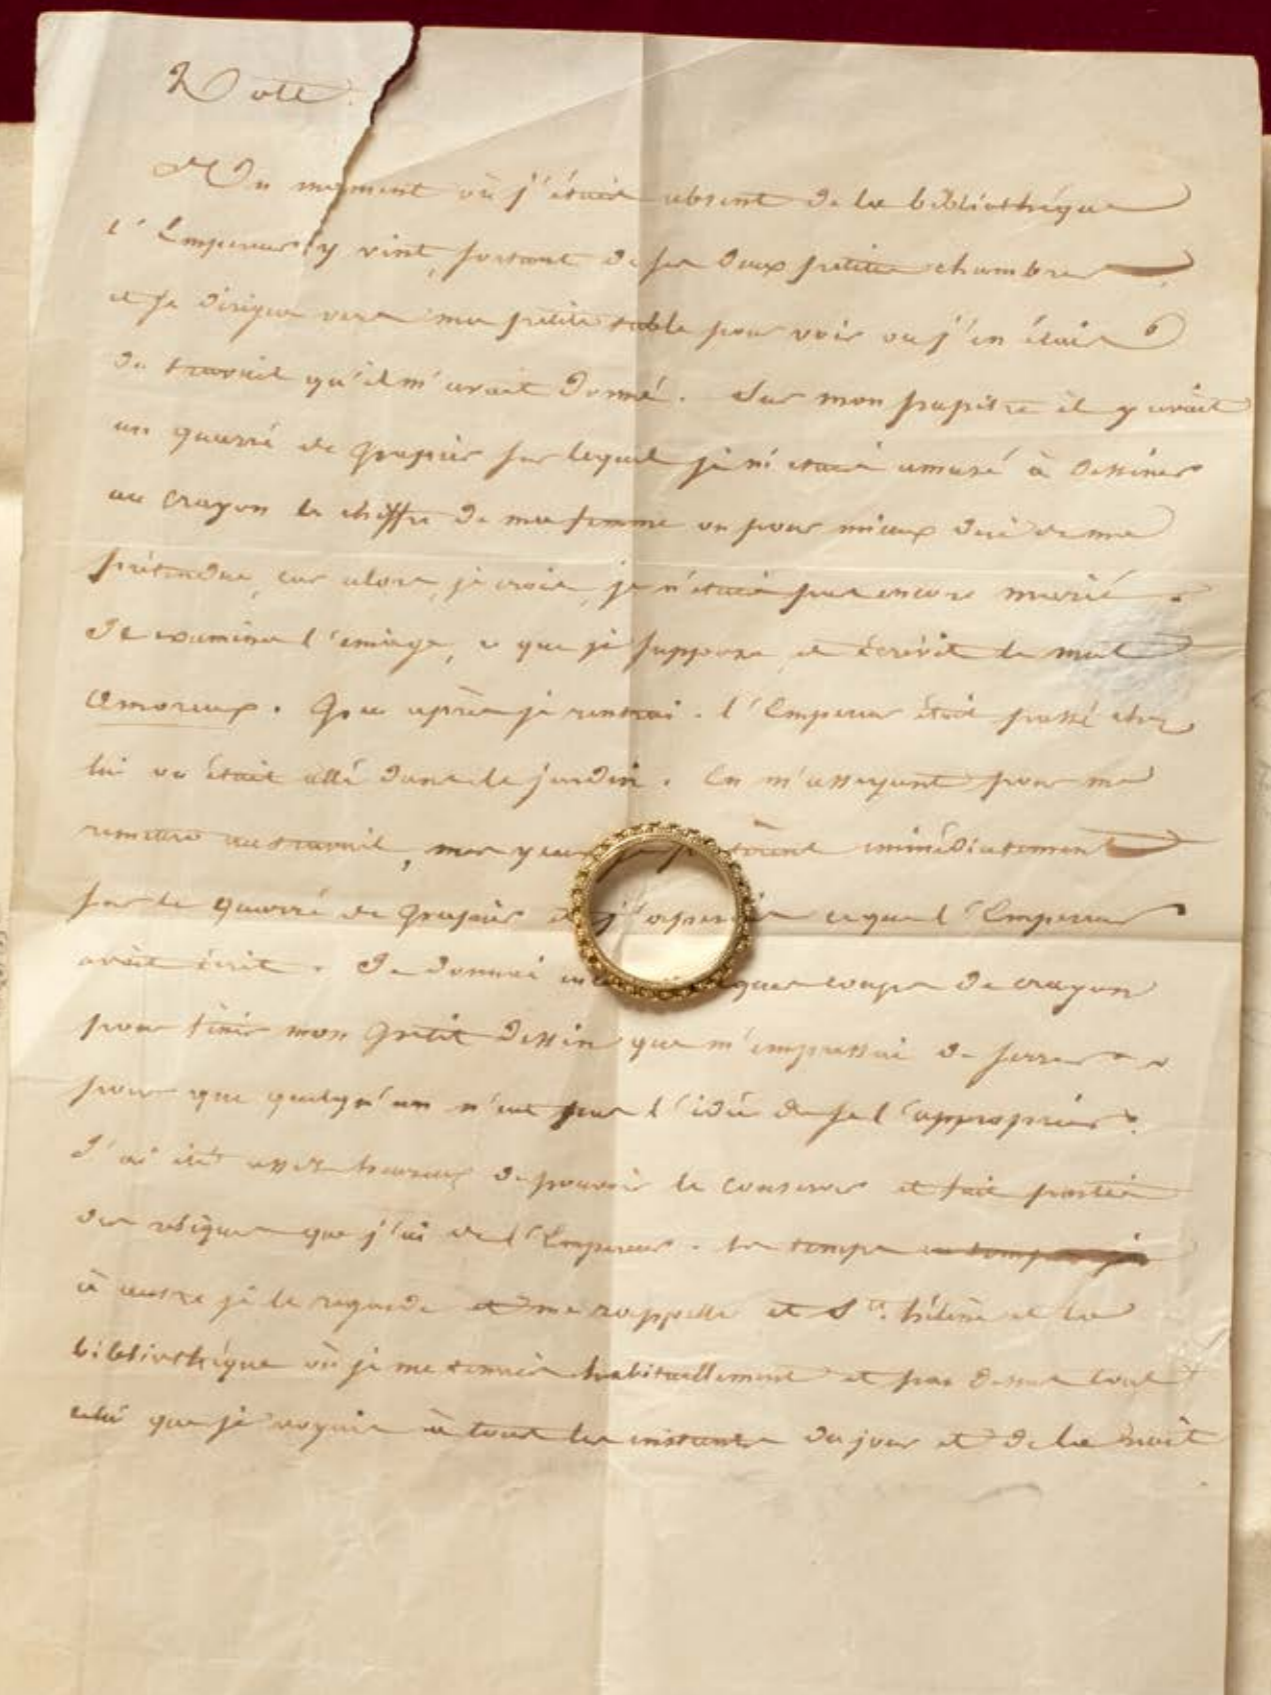 Note.
Un moment où j'étais absent de la bibliothéque
l'Empereur y vint, sortant de ses deux petites chambres
et se dirigea vers ma petite table pour voir où j'en étais
du travail qu'il m'avait donné. Sur mon pupitre il y avait
un quarré de papier sur lequel je m'étais amusé à dessiner
au crayon le chiffre de ma femme ou pour mieux dire de ma
prétendue, car alors, je crois, je n'étais pas encore marié.
Il examina l'image, à ce que je suppose, et écrivit le mot
Amoreux. Peu après je rentrai. l'Empereur était passé chez
lui ou était allé dans le jardin. En m'asseyant pour me
remettre au travail, mes yeux se immédiatement
sur le quarré de papier et j'aperçus ce que l'Empereur
avait écrit. Je donnai coups de crayon
pour finir mon petit dessin que m'empressai de serrer
pour que quelqu'un n'eut pas l'idée de se l'approprier.
J'ai été assez heureux de pouvoir le conserver et fait partie
des reliques que j'ai de l'Empereur. De temps
à autre je le regarde et me rappelle et Ste. hélène et la
bibliothéque où je me tenais habituellement et par dessus tout
celui que je voyais à tous les instants du jour et de la nuit